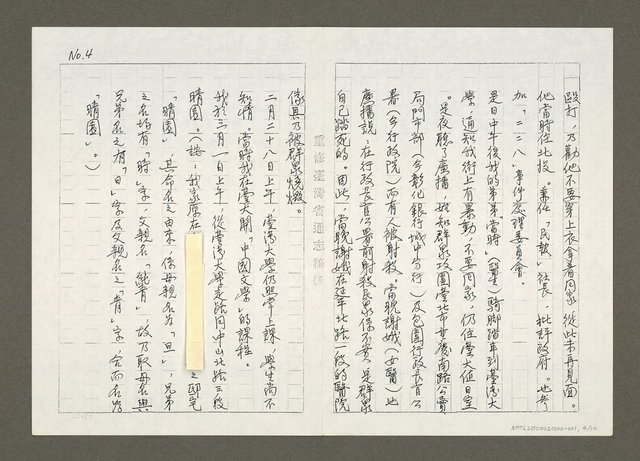 No.4
毆打,乃勸他不要穿上衣(拿着回家,從此未再見面。
他當時住北投。兼任「民報」社長,批評政府。也參
加「二二八」事件處理委員會。
是日中午後我的弟弟當時(醫生)騎腳踏車到臺灣大
學,通知我街上有暴動,不要回家,仍住臺大值日室
。是夜聽廣播,始知群眾攻圍臺北市重慶南路公賣
局門市部(今彰化銀行城中分行)及包圍行政長官公
署(今行政院)而有人被射殺。當晚謝娥(女醫)也
廣播說,在行政長官公署前射殺民眾係不實,是群眾
自己踏死的。因此,當晚謝娥在延平北路一段的醫院
傢具乃被群眾燒燬。
二月二十八日上午,臺灣大學仍照常上課,學生尚不
知情。當時我在臺大開「中國文學」的課程。
我於三月一日上午,從臺灣大學走路回中山北路三段
晴園。(按:我家原在
之邸宅
「晴園」其命名之由來,係母親名為「旦」,兄弟
之名均有「時」字,父親名「純青」,故乃取母名與
兄弟名之有「日」字及父親名之「青」字,合而名為
「晴園」。)
重修臺灣省通志稿紙
NMTL20100020100-001, 4/10